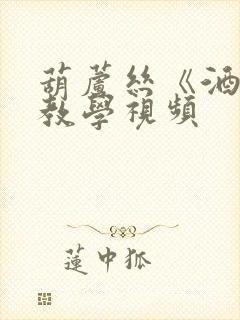 葫蘆絲《酒
教學視頻
蓮中狐